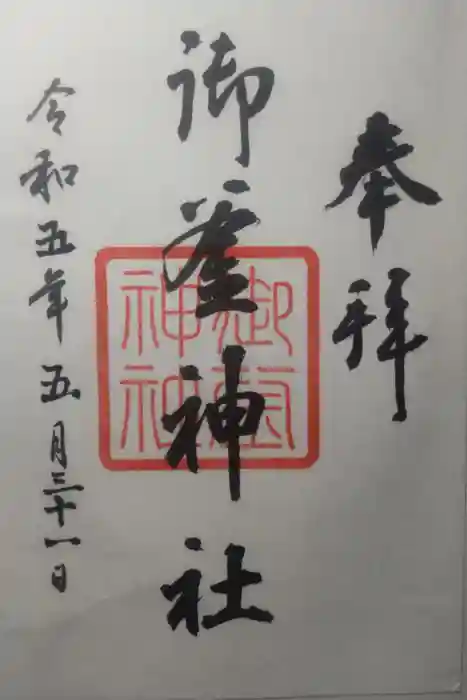 奉拝
御釜神社
令和五年五月三十一日
御釜神社